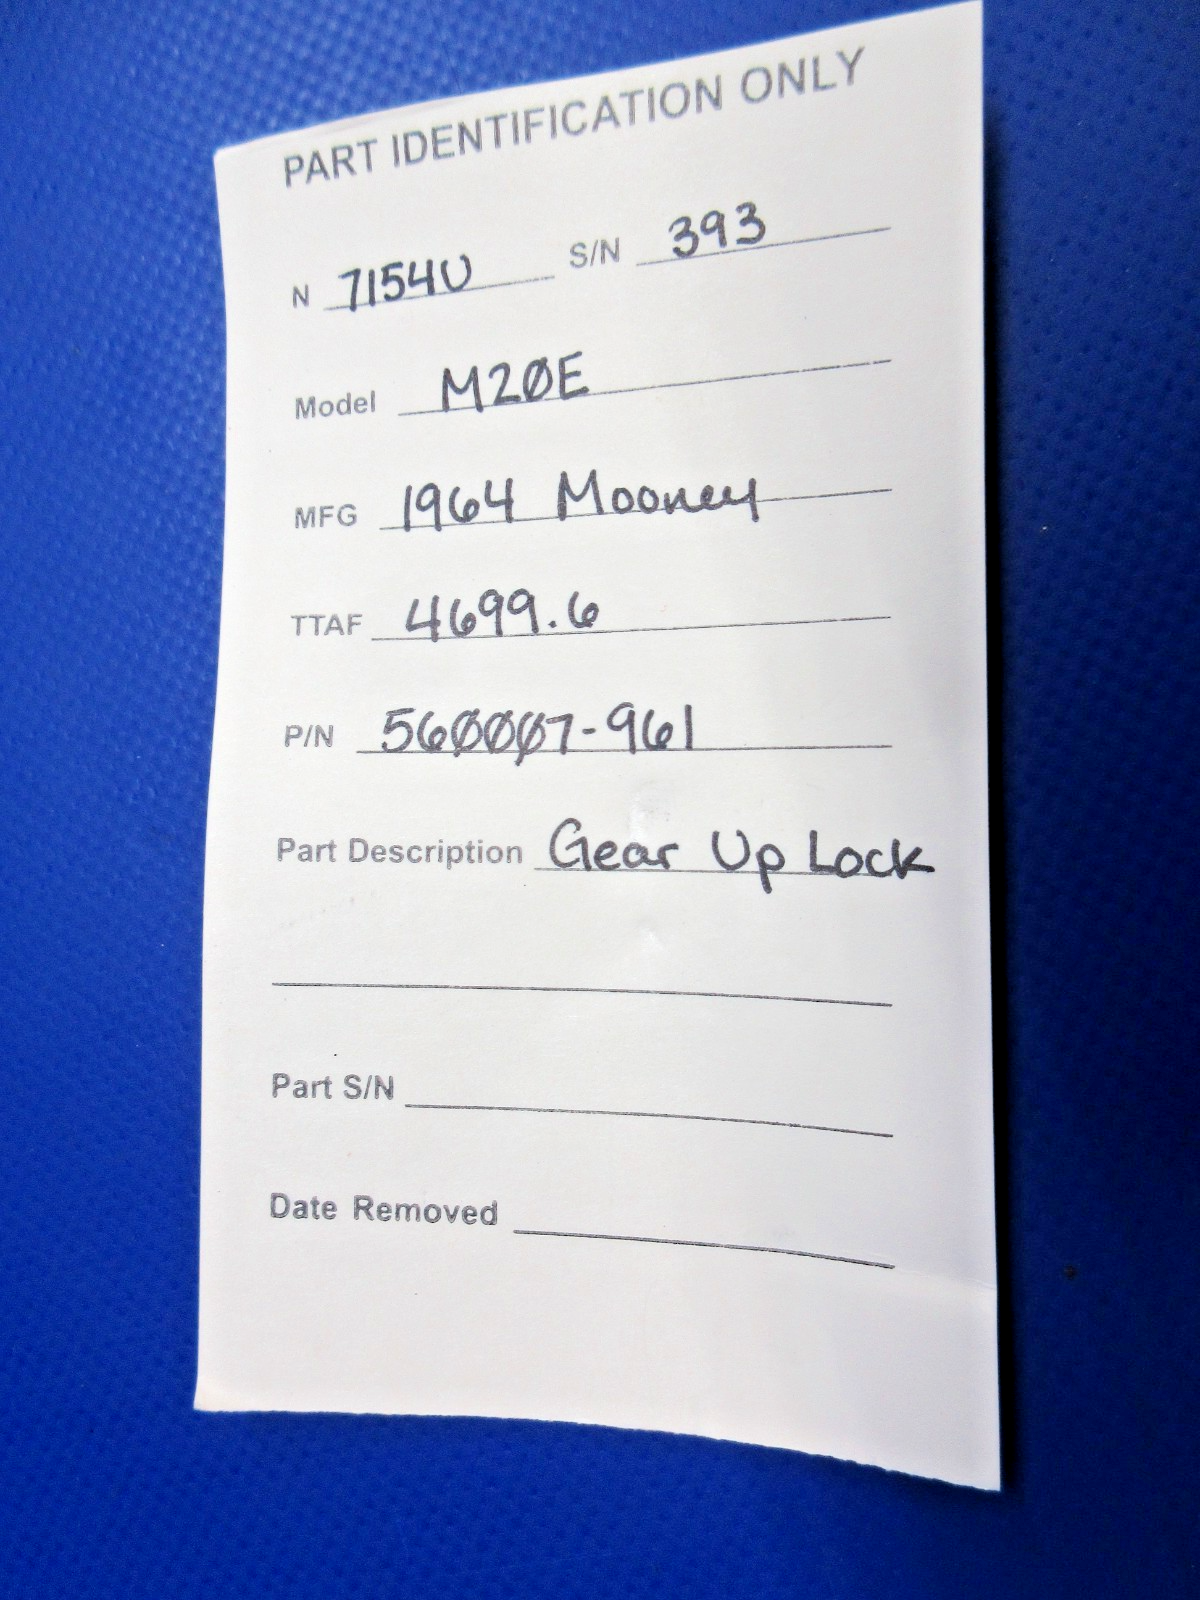 PART IDENTIFICATION ONLY
N 7154U S/N 393
Model M20E
MFG 1964 Mooney
TTAF 4699.6
P/N 560007-961
Part Description Gear Up Lock
Part S/N
Date Removed